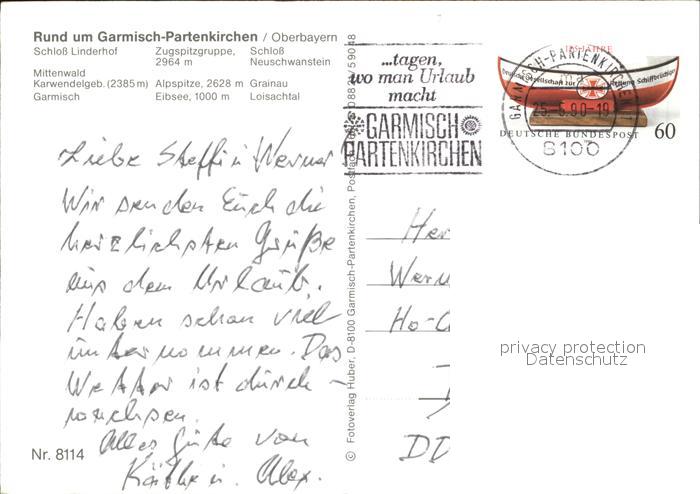 Rund um Garmisch-Partenkirchen / Oberbayern
Schloß Linderhof Zugspitzgruppe, 2964 m Schloß Neuschwanstein
Mittenwald
Karwendelgeb. (2385 m) Alpspitze, 2628 m Grainau
Garmisch Eibsee, 1000 m Loisachtal
Liebe Steffi u. Werner
Wir senden Euch die
herzlichsten Grüße
aus dem Urlaub.
Haben schon viel
unternommen. Das
Wetter ist durch-
wachsen.
Alles Gute von
Käthe u. Alex.
Nr. 8114
© Fotoverlag Huber, D-8100 Garmisch-Partenkirchen, Postfach
...tagen,
wo man Urlaub
macht
GARMISCH
PARTENKIRCHEN
GARMISCH-PARTENKIRCHEN 1
25.-5.90-19
8100
125 JAHRE
Deutsche Gesellschaft zur Rettung Schiffbrüchiger
DEUTSCHE BUNDESPOST 60
Her
Wern
Ho-C
DD
privacy protection
Datenschutz